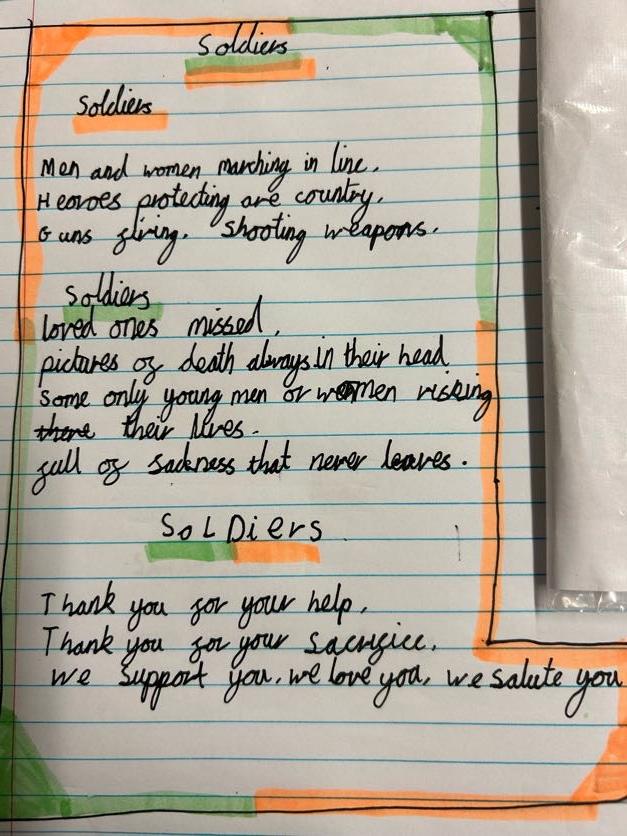 Soldiers
Soldiers
Men and women marching in line.
Heoroes protecting are country.
Guns firing. Shooting weapons.
Soldiers
loved ones missed.
pictures of death always in their head
some only young men or women risking
there their lives.
full of sadness that never leaves.
SoLDiers
Thank you for your help.
Thank you for your sacrifice.
We support you. we love you. we salute you